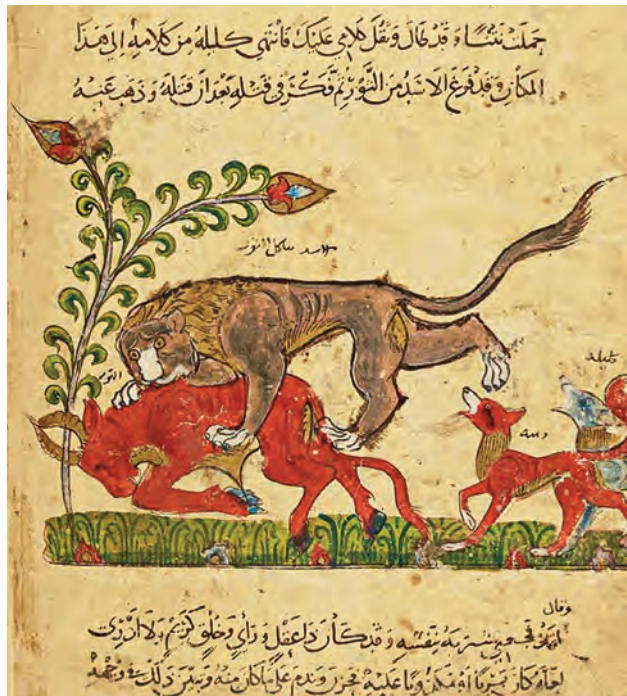 حملت نتنا وقد طال وثقل كلامي عليك فانتهى كليله من كلامه الى هذا
المكان وقد فرغ الاسد من الثور ثم فكر في قتله بعد ان قتله وذهب عنه
الاسد ياكل الثور
الثور
كليله
دمنه
وقال
لقد فجعني شتربه بنفسه وقد كان ذا عقل وراي وخلق كريم ولا ادري
لعله كان بريا او مكذوبا عليه فحزن وندم على ما كان منه وتبين ذلك في وجهه